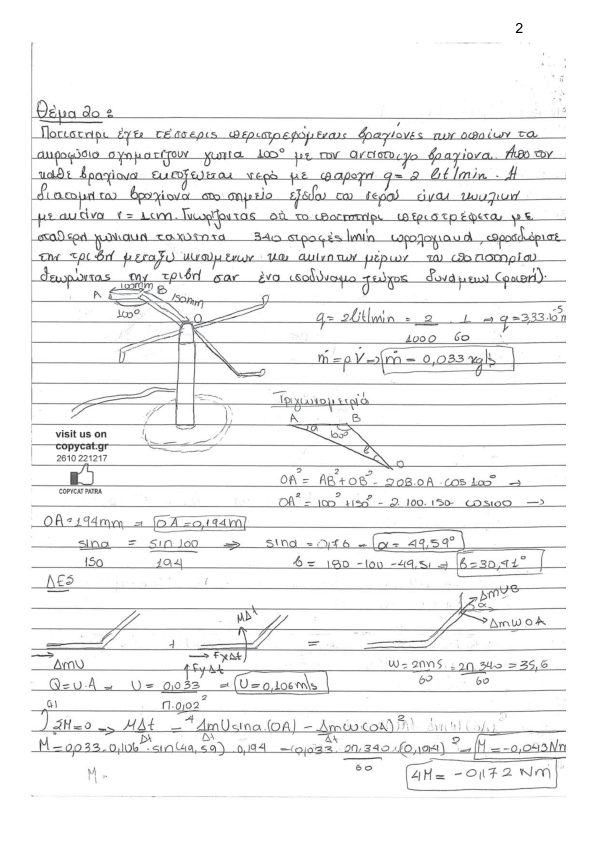 2
Θέμα 2ο:
Ποτιστήρι έχει τέσσερις περιστρεφόμενους βραχίονες των οποίων τα
ακροφύσια σχηματίζουν γωνία 100° με τον αντίστοιχο βραχίονα. Από τον
κάθε βραχίονα εκτοξεύεται νερό με παροχή q = 2 lit/min. Η
διατομή του βραχίονα στο σημείο εξόδου του νερού είναι κυκλική
με ακτίνα r = 1cm. Γνωρίζοντας ότι το ποτιστήρι περιστρέφεται με
σταθερή γωνιακή ταχύτητα 340 στροφές/min ωρολογιακά, προσδιόρισε
την τριβή μεταξύ κινούμενων και ακίνητων μέρων του ποτιστηριού
θεωρώντας την τριβή σαν ένα ισοδύναμο ζεύγος δυνάμεων (ροπή).
100mm
A B 150mm
100°
O
q = 2lit/min = 2/1000 · 1/60 → q = 3,33·10^-5 m
ṁ = ρ V̇ → ṁ = 0,033 kg/s
Τριγωνομετρία
A B
α 100°
β
O
visit us on
copycat.gr
2610 221217
COPYCAT PATRA
OA² = AB² + OB² - 2OB·OA·cos100° →
OA² = 100² + 150² - 2·100·150· cos100 →
OA = 194mm = OA = 0,194m
sina/150 = sin100/194 ⇒ sina = 0,76 → α = 49,59°
β = 180 - 100 - 49,51 ⇒ β = 30,41°
ΔΕΣ
ΔmUB
α
ΔmωOA
MΔt
+ =
ΔmU FxΔt
FyΔt
ω = 2πn5/60 = 2π 340/60 = 35,6
Q = U·A → U = 0,033/π·0,02² = U = 0,106m/s
ΣM=0 → MΔt/Δt = ΔmUsina(OA)/Δt - Δmω(OA)²/Δt
M = 0,033·0,106·sin(49,59)·0,194 - 0,033·2π·340/60·(0,194)² → M = -0,043Nm
M =
4M = -0,172 Nm